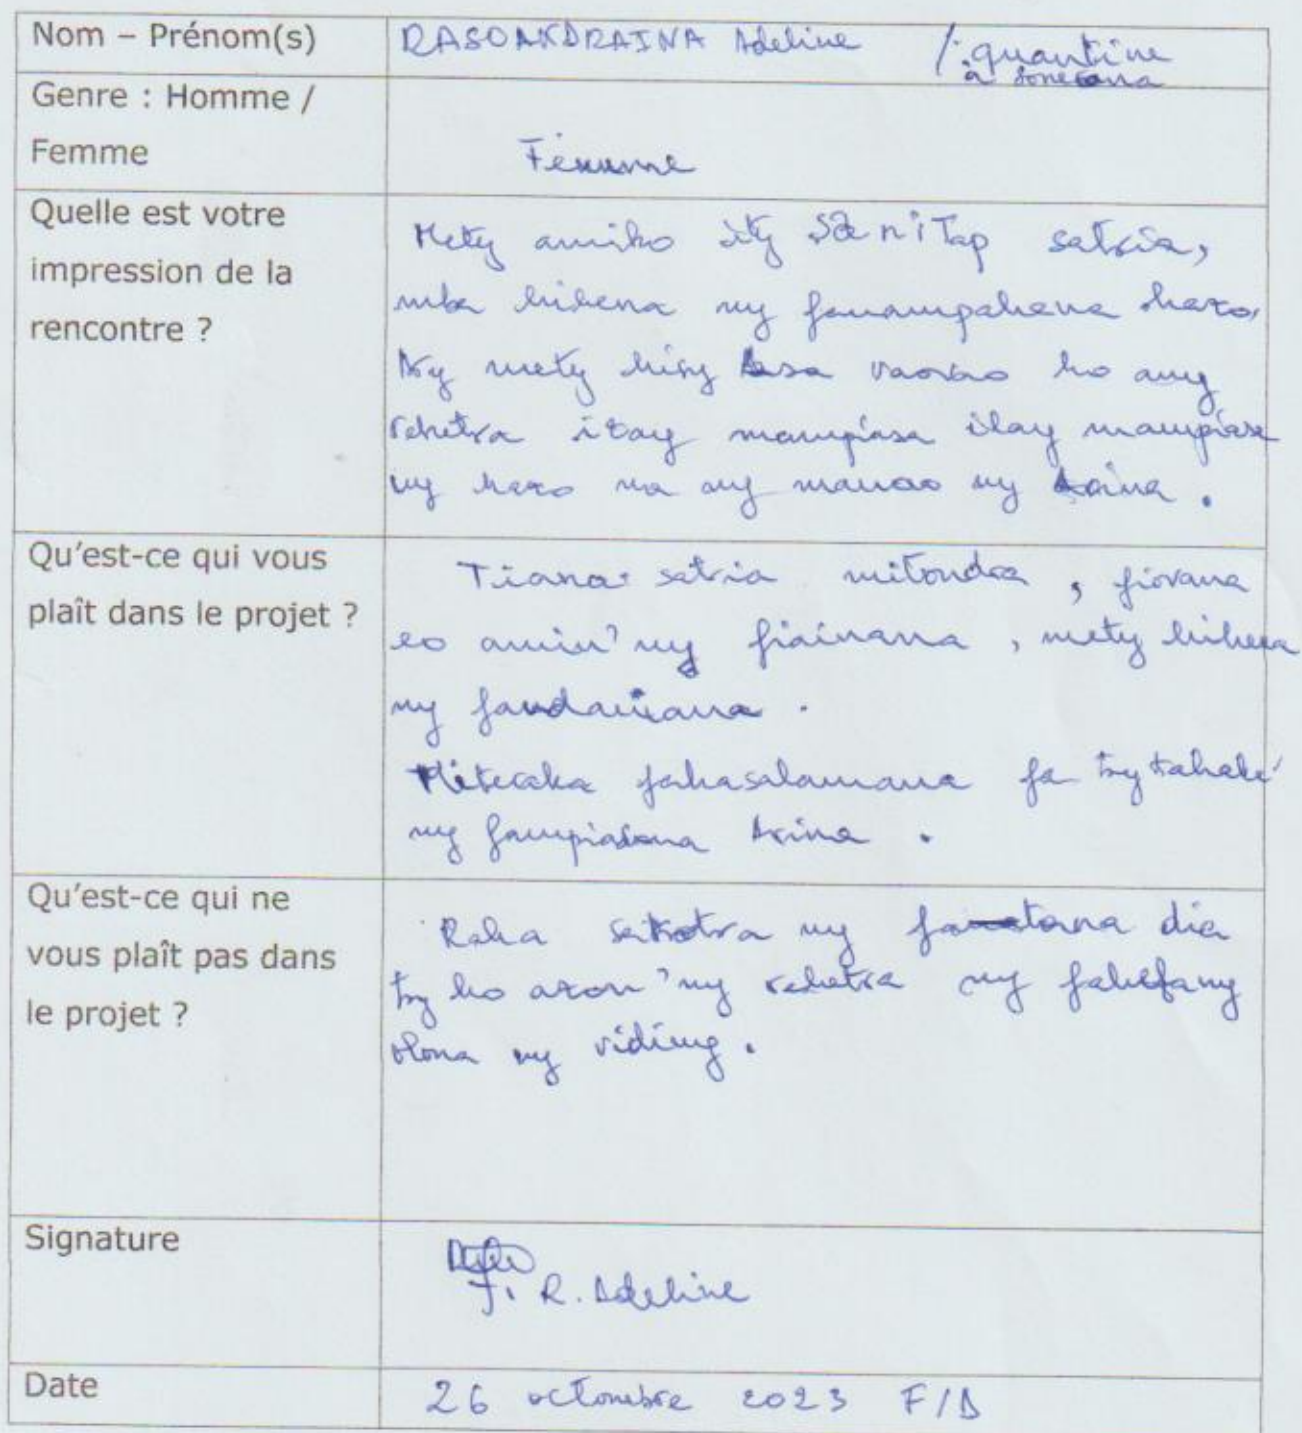 Nom – Prénom(s)
RASOANDRAINA Adeline /: quantine
à
Genre : Homme /
Femme
Femme
Quelle est votre
impression de la
rencontre ?
Mety amiko ity SaniTap satria,
mba hihena ny fanampahana hazo,
tsy mety hisy asa vaovao ho any
rehetra izay mampiasa ilay mampiasa
ny hazo na ny manao ny arina.
Qu'est-ce qui vous
plaît dans le projet ?
Tiana satria mitondra, fiovana
eo amin'ny fiainana, mety hihena
ny fandaniana.
Miteraka fahasalamana fa tsy tahaka
ny fampiasana arina.
Qu'est-ce qui ne
vous plaît pas dans
le projet ?
Raha sarotra ny dia
tsy ho azon'ny rehetra ny fahefany
olona ny vidiny.
Signature
J. R. Adeline
Date
26 octombre 2023 F/A